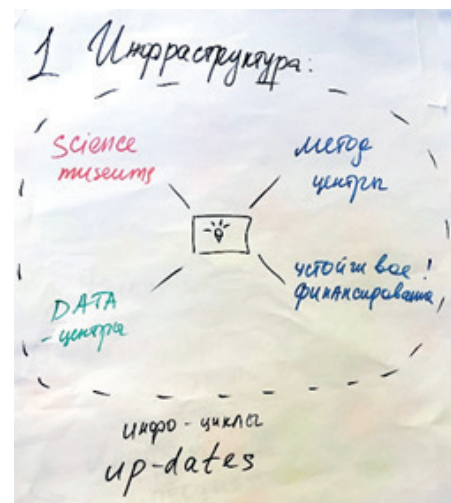 1 Инфраструктура:
Science
museums
метод
центры
устойчивое!
финансирование
DATA
- центры
инфо - циклы
up-dates